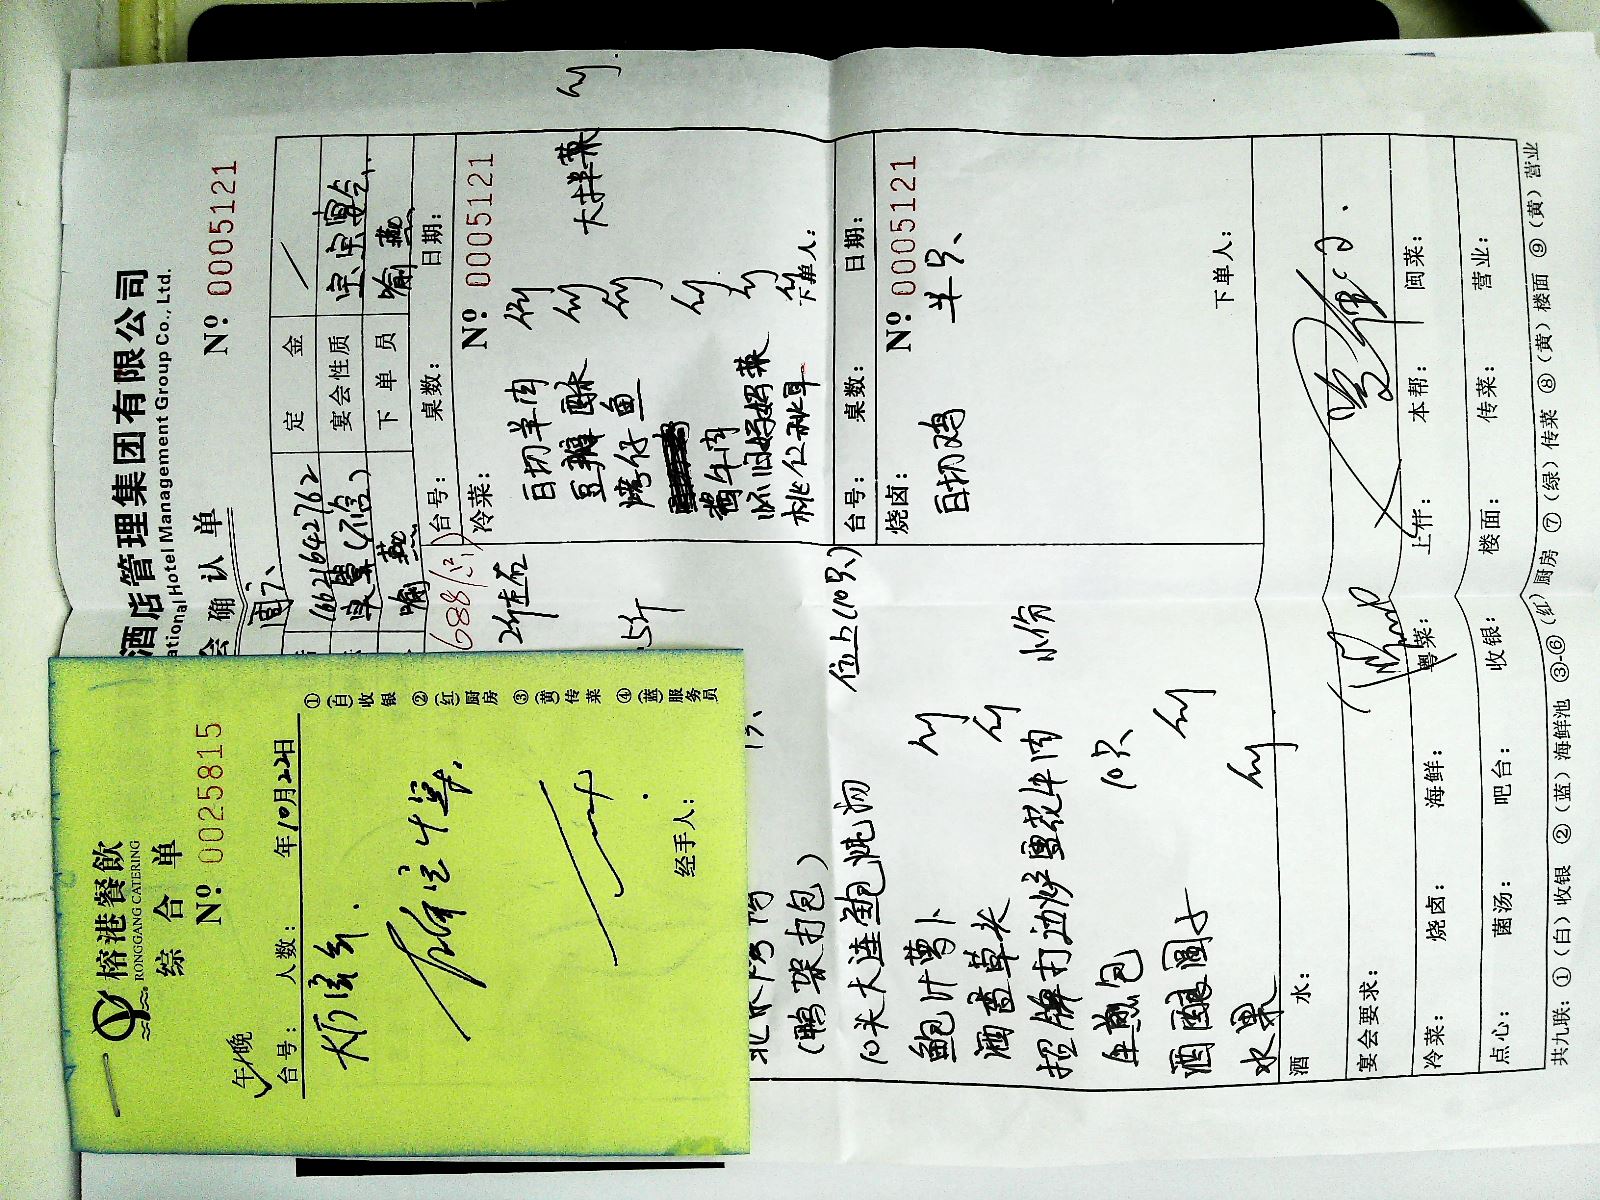 酒店管理集团有限公司
ational Hotel Management Group Co., Ltd.
会 确 认 单
Nº: 0005121
定 金
16621642762
宴会性质
宝宝宴
下 单 员
喻燕
喻燕
688/
台号:
桌数:
日期:
冷菜:
Nº: 0005121
白切羊肉 例
豆瓣酥 例
烤仔鱼 例
酱牛肉 例
怀旧妈妈菜 例
桃仁秋耳 例
大拌菜 例
下单人:
台号:
桌数:
日期:
烧卤:
Nº: 0005121
白切鸡 半只
下单人:
2斤左右
5斤
(鸭架打包)
10头大连鲍炖 位上(10只)
鲍汁萝卜 例
酒香草头 例
招牌打边炉雪花牛肉 小份
生煎包 10只
酒酿圆子 例
水果 例
酒 水:
宴会要求:
冷菜:
烧卤:
海鲜:
粤菜:
上什:
本帮:
闽菜:
点心:
菌汤:
吧台:
收银:
楼面:
传菜:
营业:
共九联: ①(白)收银 ②(蓝)海鲜池 ③-⑥(红)厨房 ⑦(绿)传菜 ⑧(黄)楼面 ⑨(黄)营业
榕港餐飲
RONGGANG CATERING
综 合 单
Nº: 0025815
午/晚
台号:
人数:
年10月22日
经手人:
①(白)收银 ②(红)厨房 ③(黄)传菜 ④(蓝)服务员